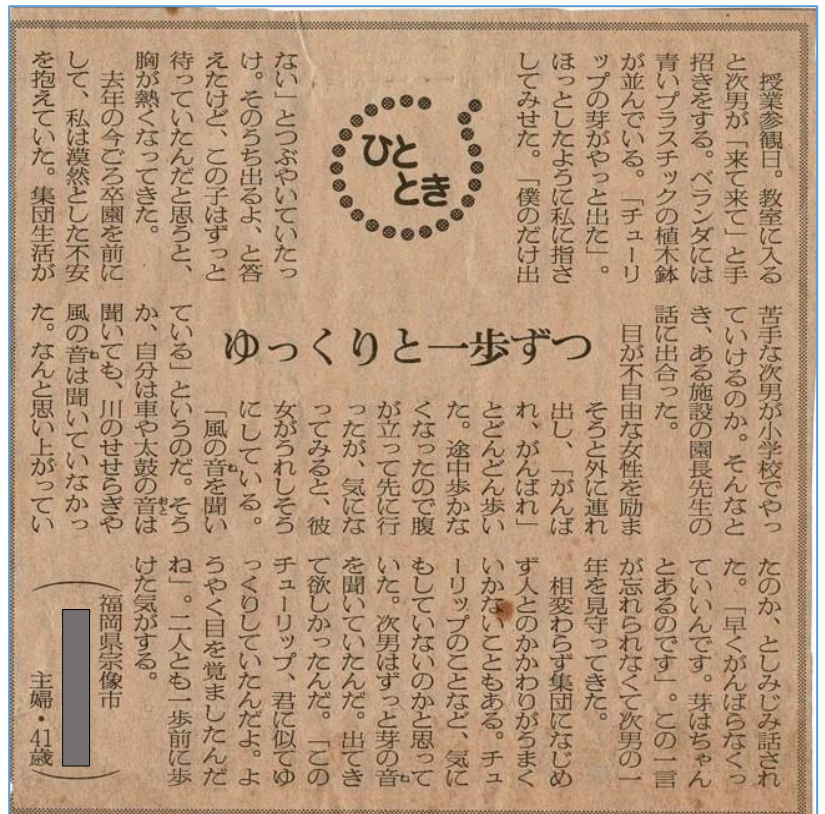 ひと
とき
ゆっくりと一歩ずつ
授業参観日。教室に入る
と次男が「来て来て」と手
招きをする。ベランダには
青いプラスチックの植木鉢
が並んでいる。「チューリ
ップの芽がやっと出た」。
ほっとしたように私に指さ
してみせた。「僕のだけ出
ない」とつぶやいていたっ
け。そのうち出るよ、と答
えたけど、この子はずっと
待っていたんだと思うと、
胸が熱くなってきた。
去年の今ごろ卒園を前に
して、私は漠然とした不安
を抱えていた。集団生活が
苦手な次男が小学校でやっ
ていけるのか。そんなと
き、ある施設の園長先生の
話に出合った。
目が不自由な女性を励ま
そうと外に連れ
出し、「がんば
れ、がんばれ」
とどんどん歩い
た。途中歩かな
くなったので腹
が立って先に行
ったが、気にな
ってみると、彼
女がうれしそう
にしている。
「風の音(ね)を聞い
ている」というのだ。そう
か、自分は車や太鼓の音(おと)は
聞いても、川のせせらぎや
風の音(ね)は聞いていなかっ
た。なんと思い上がってい
たのか、としみじみ話され
た。「早くがんばらなくっ
ていいんです。芽はちゃん
とあるのです」。この一言
が忘れられなくて次男の一
年を見守ってきた。
相変わらず集団になじめ
ず人とのかかわりがうまく
いかないこともある。チュ
ーリップのことなど、気に
もしていないのかと思って
いた。次男はずっと芽の音(ね)
を聞いていたんだ。出てき
て欲しかったんだ。「この
チューリップ、君に似てゆ
っくりしていたんだよ。よ
うやく目を覚ましたんだ
ね」。二人とも一歩前に歩
けた気がする。
(福岡県宗像市
主婦・41歳)